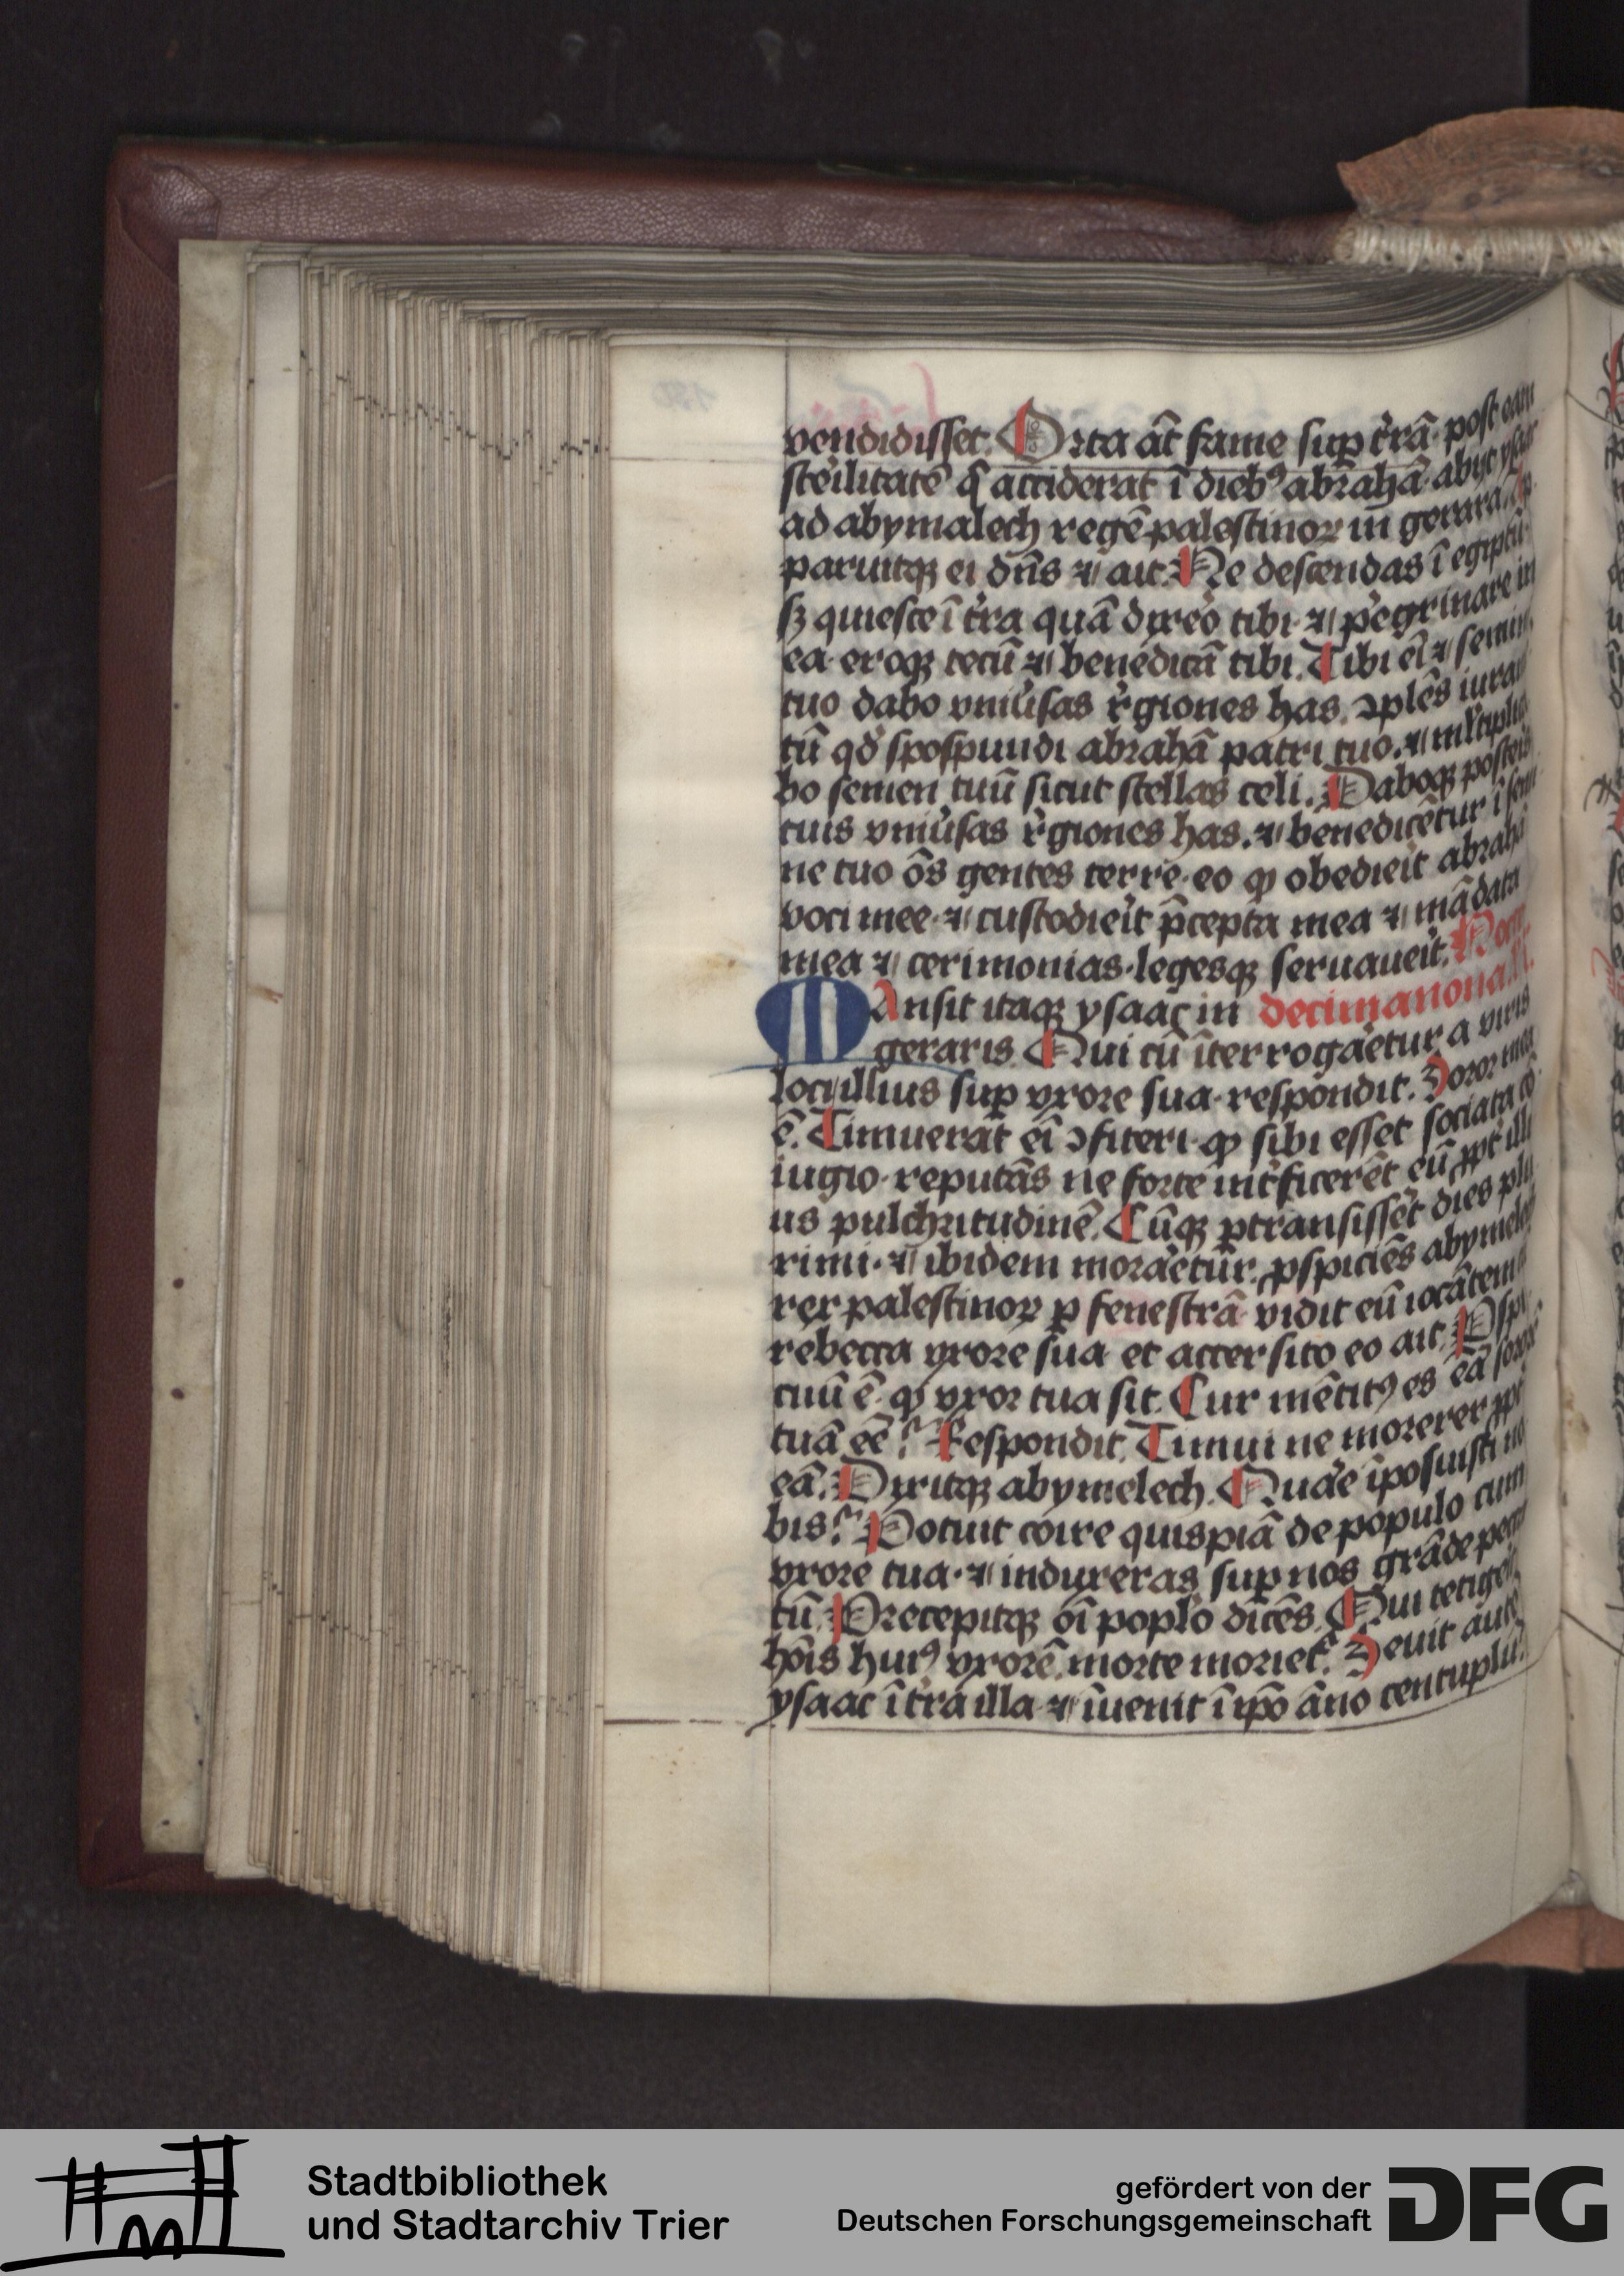 vendidisset. Orta āt fame sup t͛rā· post eam
ste͛ilitatē q̄ acciderat ī diebꝰ abrahā· abijt ysaac
ad abymalech regē palestinoꝝ in gerara. Ap
paruitqꝫ ei dn̄s ⁊ ait. Ne descendas ī egiptū·
sꝫ quiesce ī t͛ra quā dixe͛o tibi· ⁊ pe͛grinare in
ea· eroqꝫ tecū ⁊ benedicā tibi. Tibi eī ⁊ semini
tuo dabo vniu͛sas r͛giones has. ꝯplēs iuramē
tū qd̛ spospundi abrahā patri tuo. ⁊ ml̛tiplica
bo semen tuū sicut stellas celi. Daboqꝫ posteris
tuis vniu͛sas r͛giones has. ⁊ benedicētur ī semi
ne tuo ōs gentes terre· eo ꝙ obedieit͛ abrahā
voci mee· ⁊ custodieit͛ p̄cepta mea ⁊ mādata
mea ⁊ cerimonias· legesqꝫ seruaueit͛.
MAnsit itaqꝫ ysaac in decimanona.
geraris. Qui cū īterrogae͛tur a viris
loci illius sup vxore sua· respondit. Soror mea
ē. Timuerat eī ꝯfiteri· ꝙ sibi esset sociata cō
iugio· reputās ne forte int͛ficerēt eū ꝓpt͛ illi
us pulchritudinē. Cūqꝫ ꝑtransissēt dies plu
rimi· ⁊ ibidem morae͛tur. ꝓspiciēs abymelech
rex palestinoꝝ ꝑ fenestrā· vidit eū iocātem
rebecca vxore sua· et accersito eo ait. Pspi
cuū ē· ꝙ vxor tua sit. Cur mētitꝰ es eā soror̄
tuā eē? Respondit. Timui ne morerer ꝓpt͛
eā. Dixitqꝫ abymelech. Quae͛ īposuisti no
bis? Potuit coire quispiā de populo cum
vxore tua· ⁊ induxeras sup nos grāde pecca
tū. Precepitqꝫ oī poplơ dicēs. Qui tetigeit͛
hōis huiꝰ vxorē. morte moriet͛. Seuit autē
ysaac ī t͛ra illa· ⁊ īuenit ī ip̄o āno centuplū.
Stadtbibliothek
und Stadtarchiv Trier
gefördert von der
Deutschen Forschungsgemeinschaft
DFG